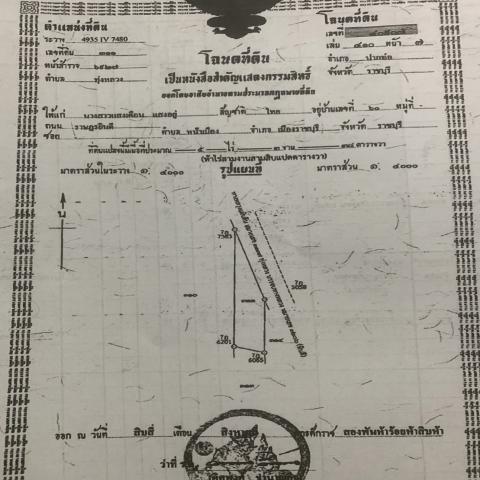 ตำแหน่งที่ดิน
ระวาง 4935 IV 7480
เลขที่ดิน ๓๑๑
หน้าสำรวจ
ตำบล ทุ่งหลวง
โฉนดที่ดิน
เป็นหนังสือสำคัญแสดงกรรมสิทธิ์
ออกโดยอาศัยอำนาจตามประมวลกฎหมายที่ดิน
โฉนดที่ดิน
เลขที่
เล่ม ๔๑๐ หน้า ๗
อำเภอ ปากท่อ
จังหวัด ราชบุรี
ให้แก่ นางสาวแสงเดือน แสงอยู่ สัญชาติ ไทย อยู่บ้านเลขที่ ๖๐ หมู่ที่ -
ถนน ราษฎรยินดี ตำบล หน้าเมือง อำเภอ เมืองราชบุรี จังหวัด ราชบุรี
ซอย
ที่ดินแปลงนี้มีเนื้อที่ประมาณ ๕ ไร่ ๓ งาน ๓๘ ตารางวา
(ห้าไร่สามงานสามสิบแปดตารางวา)
มาตราส่วนในระวาง ๑: ๔๐๐๐ รูปแผนที่ มาตราส่วน ๑: ๔๐๐๐
น
7583
3058
๓๑๐
๓๑๑
๓๑๔
6201
6085
๓๑๓
ออก ณ วันที่ สิบสี่ เดือน สิงหาคม พุทธศักราช สองพันห้าร้อยห้าสิบห้า
ว่าที่